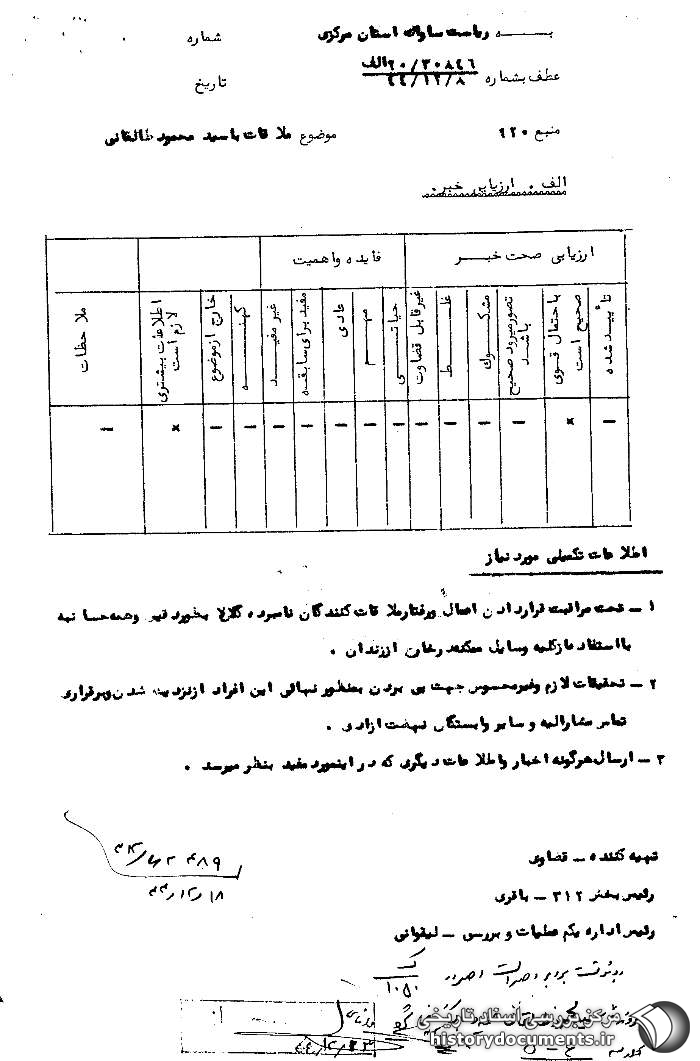 بـــه ریاست ساواک استان مرکزی
شماره
عطف بشماره ۲۰/۳۰۸۴۶الف
۴۴/۱۲/۸
تاریخ
منبع ۹۲۰
موضوع ملاقات با سید محمود طالقانی
الف . ارزیابی خبر.
ارزیابی صحت خبــر
فایده و اهمیت
تأیید شده
باحتمال قوی صحیح است
تصور میرود صحیح باشد
مشکــوك
غلــط
غیر قابل قضاوت
حیاتــی
مهــم
عادی
مفید برای سابقه
غیر مفیــد
کهنــه
خارج از موضوع
اطلاعات بیشتری لازم است
ملاحظات
— × — — — — — — — — — — — × —
اطلاعات تکمیلی مورد نیاز
۱ — تحت مراقبت قرار دادن اعمال و رفتار ملاقات کنندگان نامبرده کلا بطور دقیق و همه جانبه
با استفاده از کلیه وسایل ممکنه در خارج از زندان .
۲ — تحقیقات لازم و غیر محسوس جهت پی بردن بمنظور نهائی این افراد از نزدیک شدن و برقراری
تماس مشارالیه و سایر وابستگان نهضت آزادی .
۳ — ارسال هرگونه اخبار و اطلاعات دیگری که در اینمورد مفید بنظر میرسد .
تهیه کننده — قضاوی
رئیس بخش ۳۱۲ — باقری
رئیس اداره یکم عملیات و بررسی —
۴۴/۱۲/۱۸
۱۰۵۰
مرکز بررسی اسناد تاریخی
historydocuments.ir